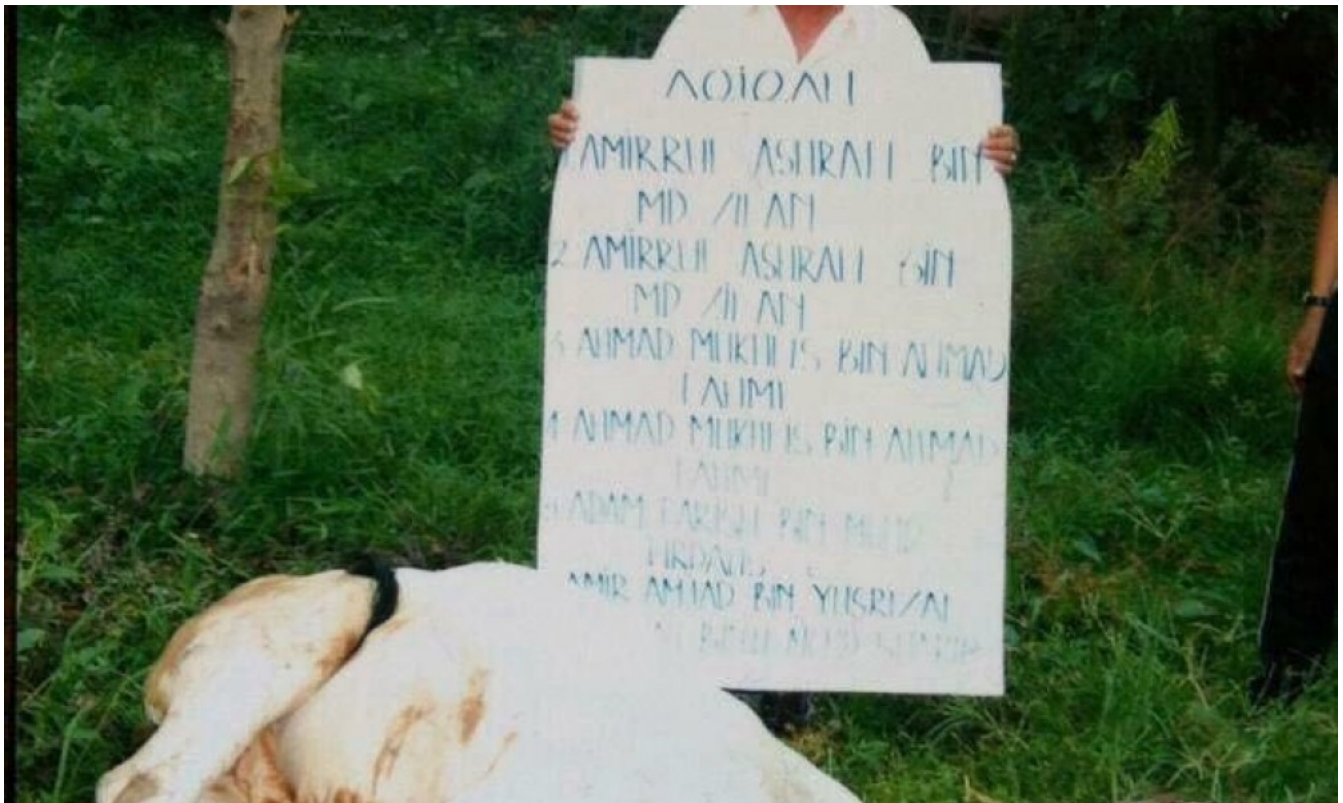 AQIQAH
1 AMIRRUL ASHRAFF BIN
MD ZILAN
2 AMIRRUL ASHRAFF BIN
MD ZILAN
3 AHMAD MUKHLIS BIN AHMAD
FAHMI
4 AHMAD MUKHLIS BIN AHMAD
FAHMI
5 ADAM FARISH BIN MUHD
FIRDAUS
AMIR AMJAD BIN YUSRIZAL